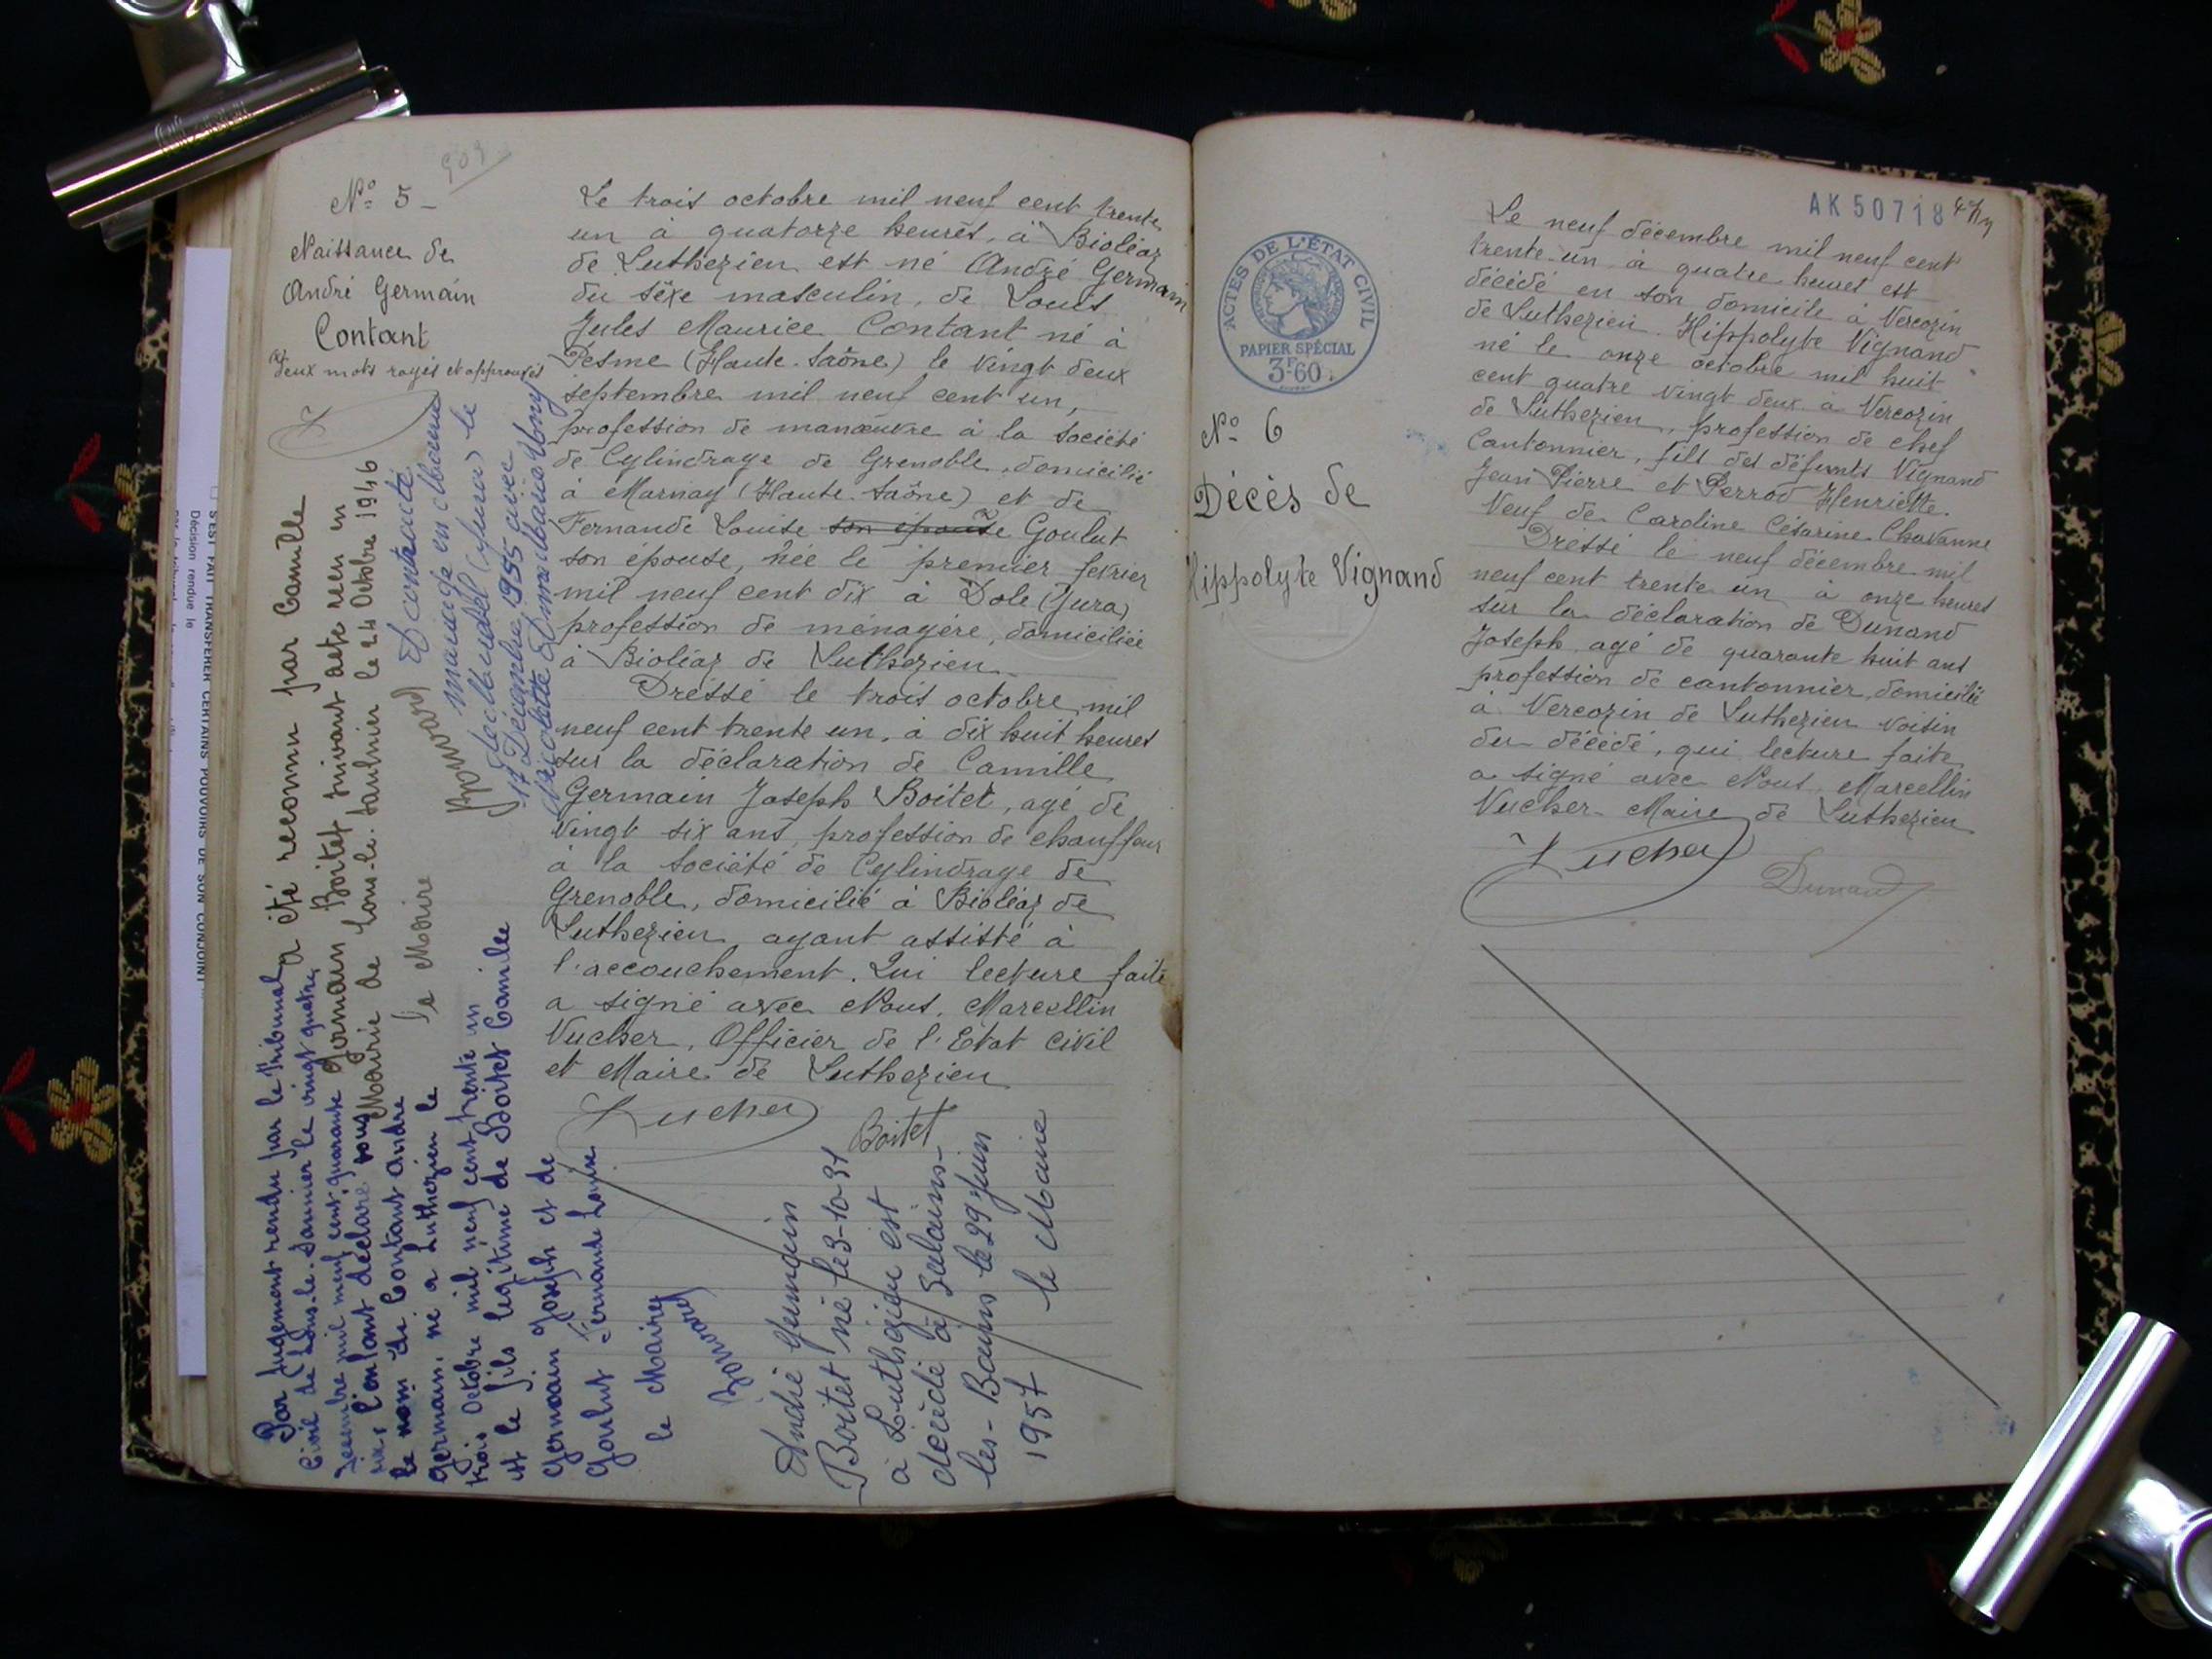 N° 5 -
Naissance de
André Germain
Contant
deux mots rayés et approuvés
Le trois octobre mil neuf cent trente
un à quatorze heures, à Bioléaz
de Luthezieu est né André Germain
du sexe masculin, de Louis
Jules Maurice Contant né à
Pesme (Haute-Saône) le vingt deux
septembre mil neuf cent un,
profession de manœuvre à la Société
de Cylindrage de Grenoble, domicilié
à Marnay (Haute-Saône) et de
Fernande Louise son épouse Goulut
son épouse, née le premier fevrier
mil neuf cent dix à Dole (Jura)
profession de ménagère, domiciliée
à Bioléaz de Luthezieu
Dressé le trois octobre mil
neuf cent trente un, à dix huit heures
sur la déclaration de Camille
Germain Joseph Boitet, agé de
vingt six ans, profession de chauffeur
à la Société de Cylindrage de
Grenoble, domicilié à Bioléaz de
Luthezieu ayant assisté à
l'accouchement. Qui lecture faite
a signé avec Nous, Marcellin
Vucher, Officier de l'Etat civil
et Maire de Luthezieu
Vucher
Boitet
a été reconnu par Camille
Germain Boitet suivant acte reçu en
Mairie de Lons-le-Saulnier le 24 Octobre 1946
le Maire
A contracté
mariage en
(Jura) le
17 Décembre 1955 avec
Par Jugement rendu par le tribunal
Civil de Lons-le-Saunier le vingt quatre
Décembre mil neuf cent quarante
six, l'enfant déclaré sous
le nom de Contant André
Germain, né à Luthezieu le
trois Octobre mil neuf cent trente un
est le fils légitime de Boitet Camille
Germain Joseph et de
Goulut Fernande Louise
le Maire
André Germain
Boitet né le 3-10-31
à Luthezieu est
décédé à Salins-
les-Bains le 29 Juin
1957 le Maire
AK 50718
ACTES DE L'ÉTAT CIVIL
PAPIER SPÉCIAL
3F60
N° 6
Décès de
Hippolyte Vignand
Le neuf décembre mil neuf cent
trente-un à quatre heures est
décédé en son domicile à Vercozin
de Luthezieu Hippolyte Vignand
né le onze octobre mil huit
cent quatre vingt deux à Vercozin
de Luthezieu, profession de chef
Cantonnier, fils des défunts Vignand
Jean Pierre et Perrod Henriette.
Veuf de Caroline Césarine Chavanne
Dressé le neuf décembre mil
neuf cent trente un à onze heures
sur la déclaration de Dunand
Joseph agé de quarante huit ans
profession de cantonnier, domicilié
à Vercozin de Luthezieu voisin
du décédé, qui lecture faite
a signé avec Nous, Marcellin
Vucher Maire de Luthezieu
Vucher
Dunand
S'EST FAIT TRANSFÉRER CERTAINS POUVOIRS DE SON CONJOINT
Décision rendue le